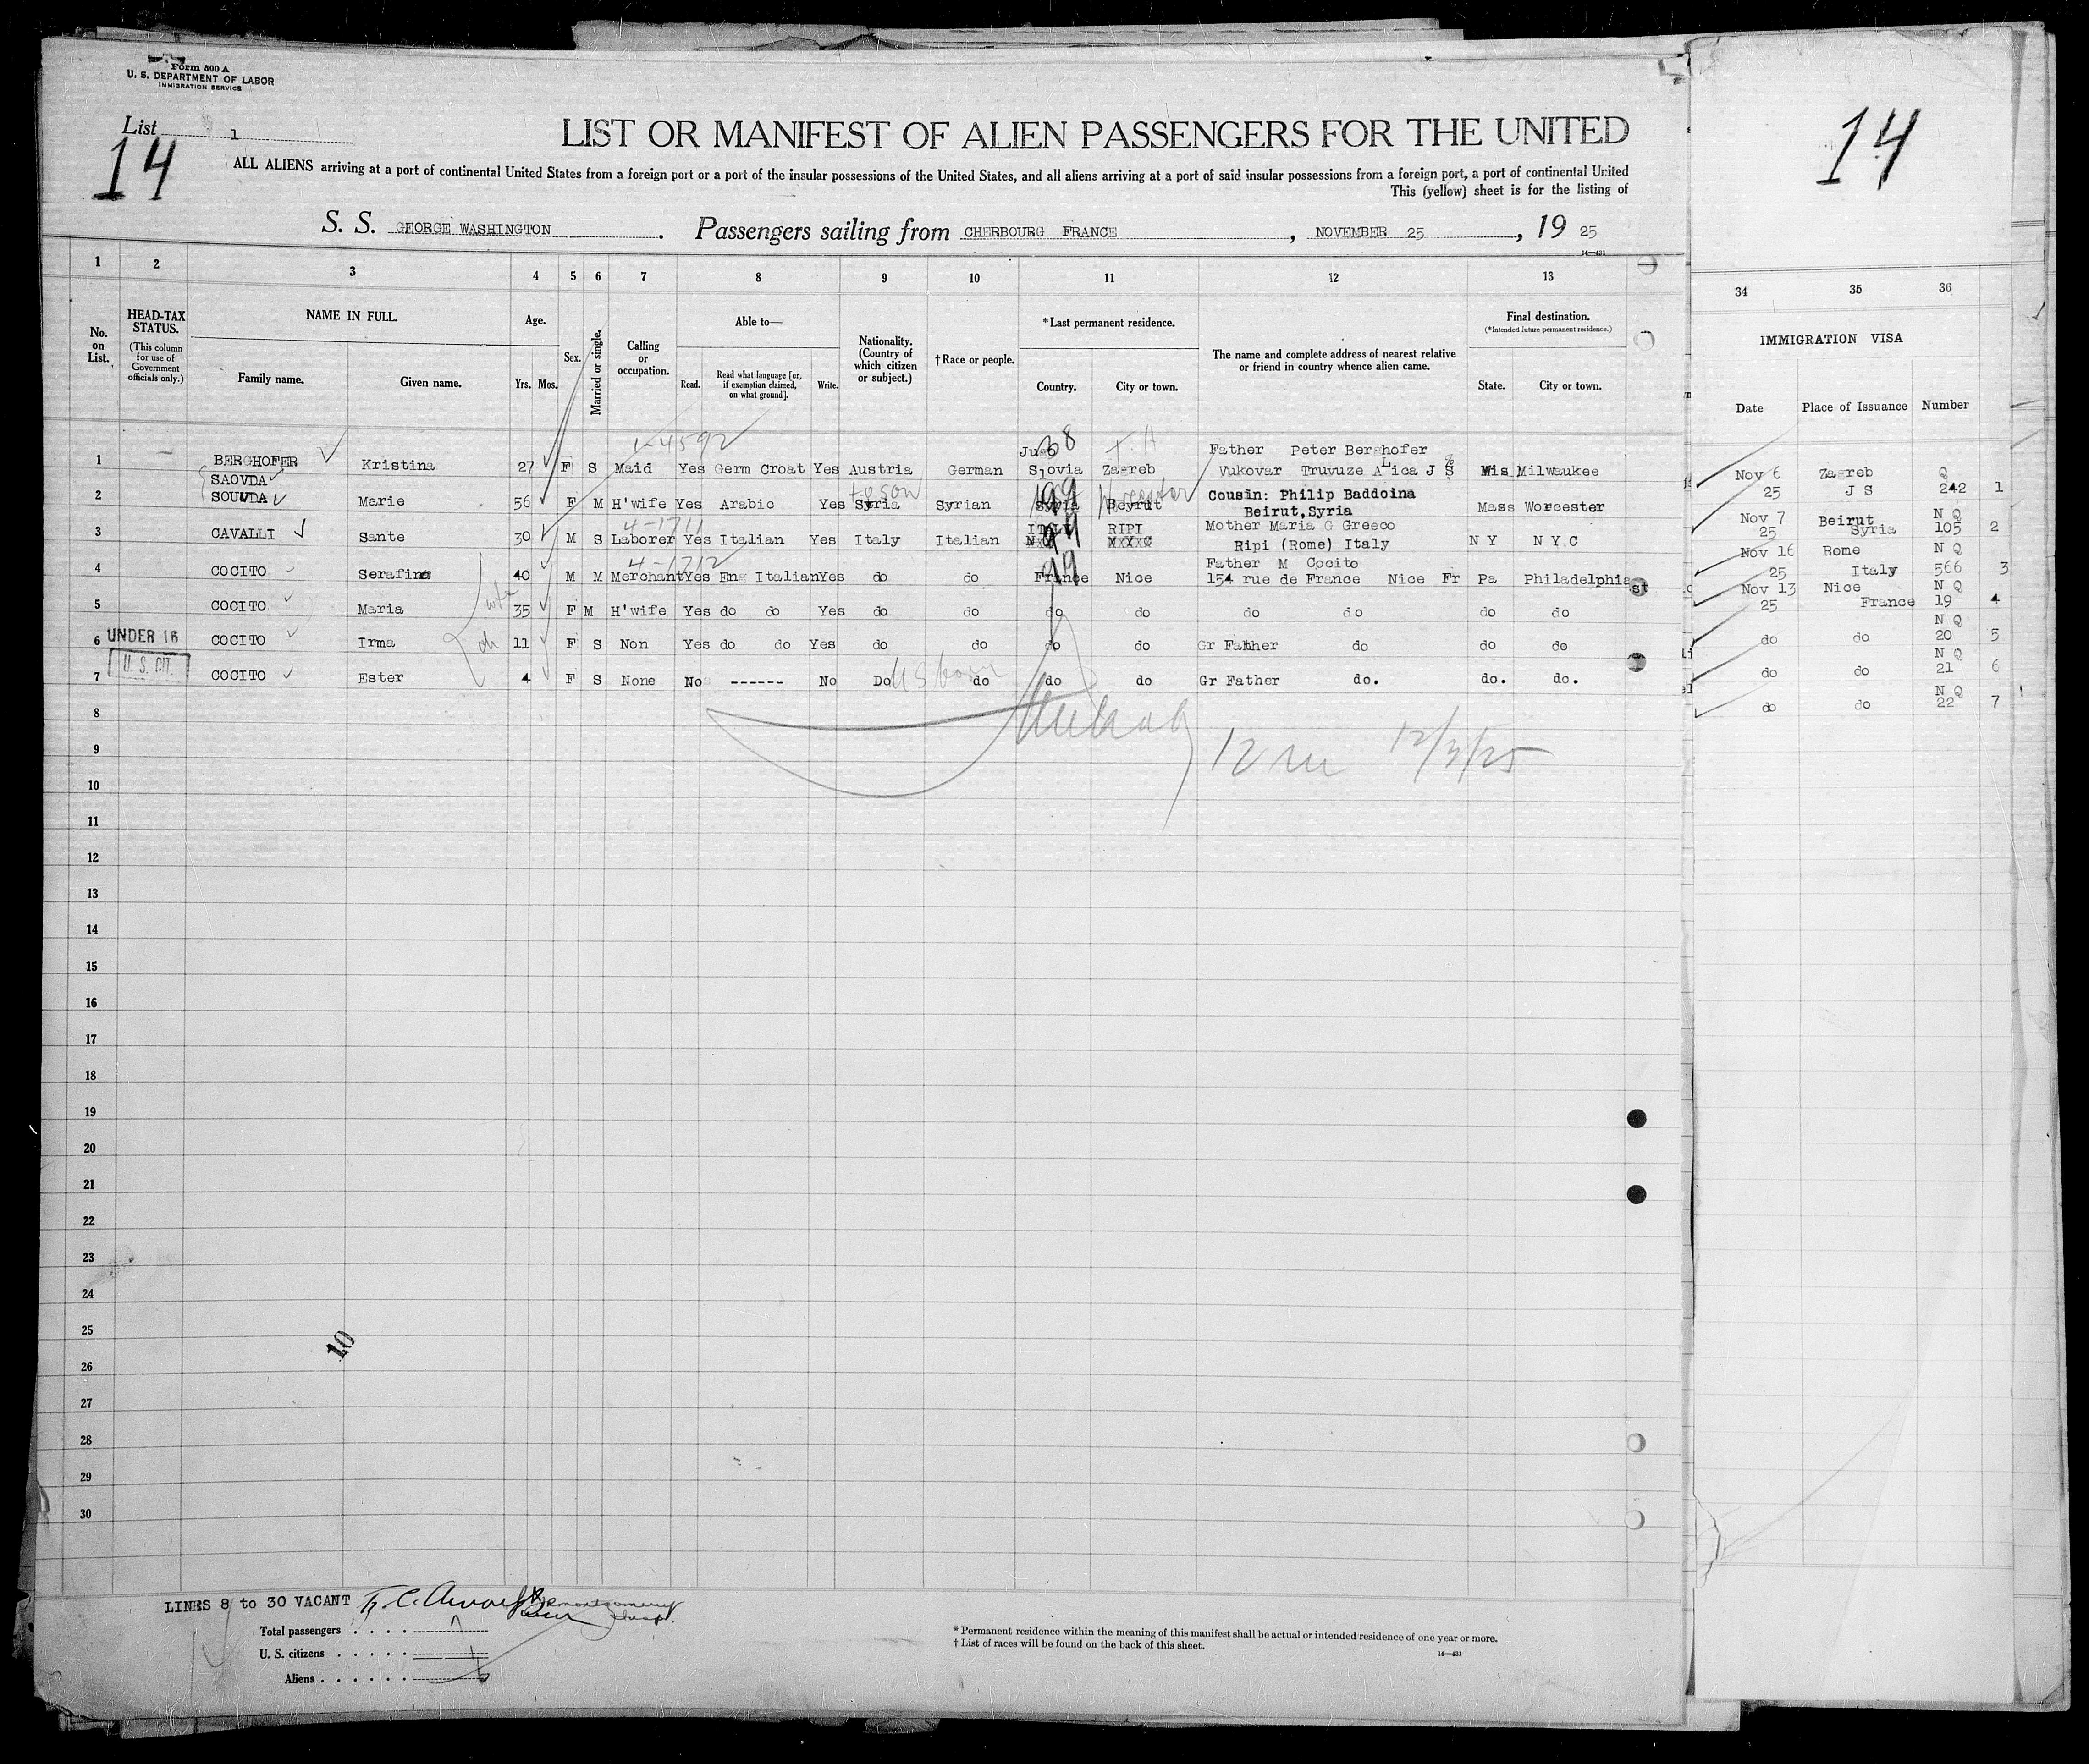 Form 500 A
U. S. DEPARTMENT OF LABOR
IMMIGRATION SERVICE
List 1
14
LIST OR MANIFEST OF ALIEN PASSENGERS FOR THE UNITED
ALL ALIENS arriving at a port of continental United States from a foreign port or a port of the insular possessions of the United States, and all aliens arriving at a port of said insular possessions from a foreign port, a port of continental United
This (yellow) sheet is for the listing of
S. S. GEORGE WASHINGTON. Passengers sailing from CHERBOURG FRANCE, NOVEMBER 25, 19 25
14—431
1 2 3 4 5 6 7 8 9 10 11 12 13
No. on List.
HEAD-TAX STATUS.
(This column for use of Government officials only.)
NAME IN FULL.
Family name. Given name.
Age.
Yrs. Mos.
Sex.
Married or single.
Calling or occupation.
Able to—
Read. Read what language [or, if exemption claimed, on what ground]. Write.
Nationality. (Country of which citizen or subject.)
†Race or people.
*Last permanent residence.
Country. City or town.
The name and complete address of nearest relative or friend in country whence alien came.
Final destination.
(*Intended future permanent residence.)
State. City or town.
1-4592
Father Peter Berghofer
1 BERGHOFER Kristina 27 F S Maid Yes Germ Croat Yes Austria German Slovia Zagreb Vukovar Truvuze J S Wis Milwaukee
SAOVDA
2 SOUVDA Marie 56 F M H'wife Yes Arabic Yes Syria Syrian Syria Beyrut Cousin: Philip Baddoina
Beirut, Syria Mass Worcester
4-1711
3 CAVALLI Sante 30 M S Laborer Yes Italian Yes Italy Italian ITALY RIPI Mother Maria G Greeco
Ripi (Rome) Italy N Y N Y C
4-1712
4 COCITO Serafino 40 M M Merchant Yes Eng Italian Yes do do France Nice Father M Cocito
154 rue de France Nice Fr Pa Philadelphia
5 COCITO Maria wife 35 F M H'wife Yes do do Yes do do do do do do do do
6 UNDER 16 COCITO Irma ch 11 F S Non Yes do do Yes do do do do Gr Father do do do
7 U. S. CIT. COCITO Ester 4 F S None No ------ No Do US born do do do Gr Father do. do. do.
8
9
12 m 12/3/25
10
11
12
13
14
15
16
17
18
19
20
21
22
23
24
25
10
26
27
28
29
30
LINES 8 to 30 VACANT
Total passengers
U. S. citizens
Aliens
* Permanent residence within the meaning of this manifest shall be actual or intended residence of one year or more.
† List of races will be found on the back of this sheet.
14—431
14
34 35 36
IMMIGRATION VISA
Date Place of Issuance Number
Nov 6 Zagreb Q
25 J S 242 1
Nov 7 Beirut N Q
25 Syria 105 2
Nov 16 Rome N Q
25 Italy 566 3
Nov 13 Nice N Q
25 France 19 4
N Q
do do 20 5
N Q
do do 21 6
N Q
do do 22 7